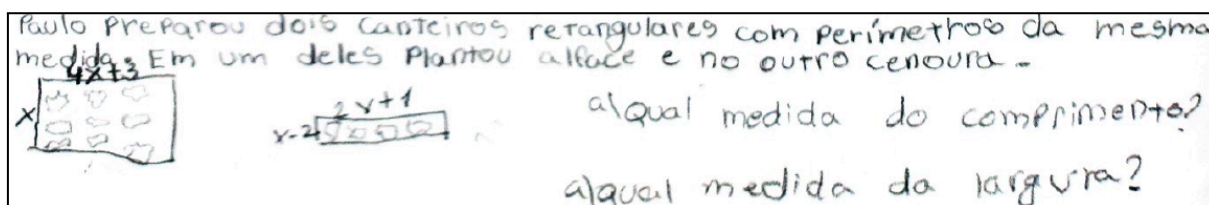 Paulo Preparou dois canteiros retangulares com perímetros da mesma
medida. Em um deles Plantou alface e no outro cenoura.
4x+3
x
2x+1
x-2
a) Qual medida do comprimento?
a) qual medida da largura?